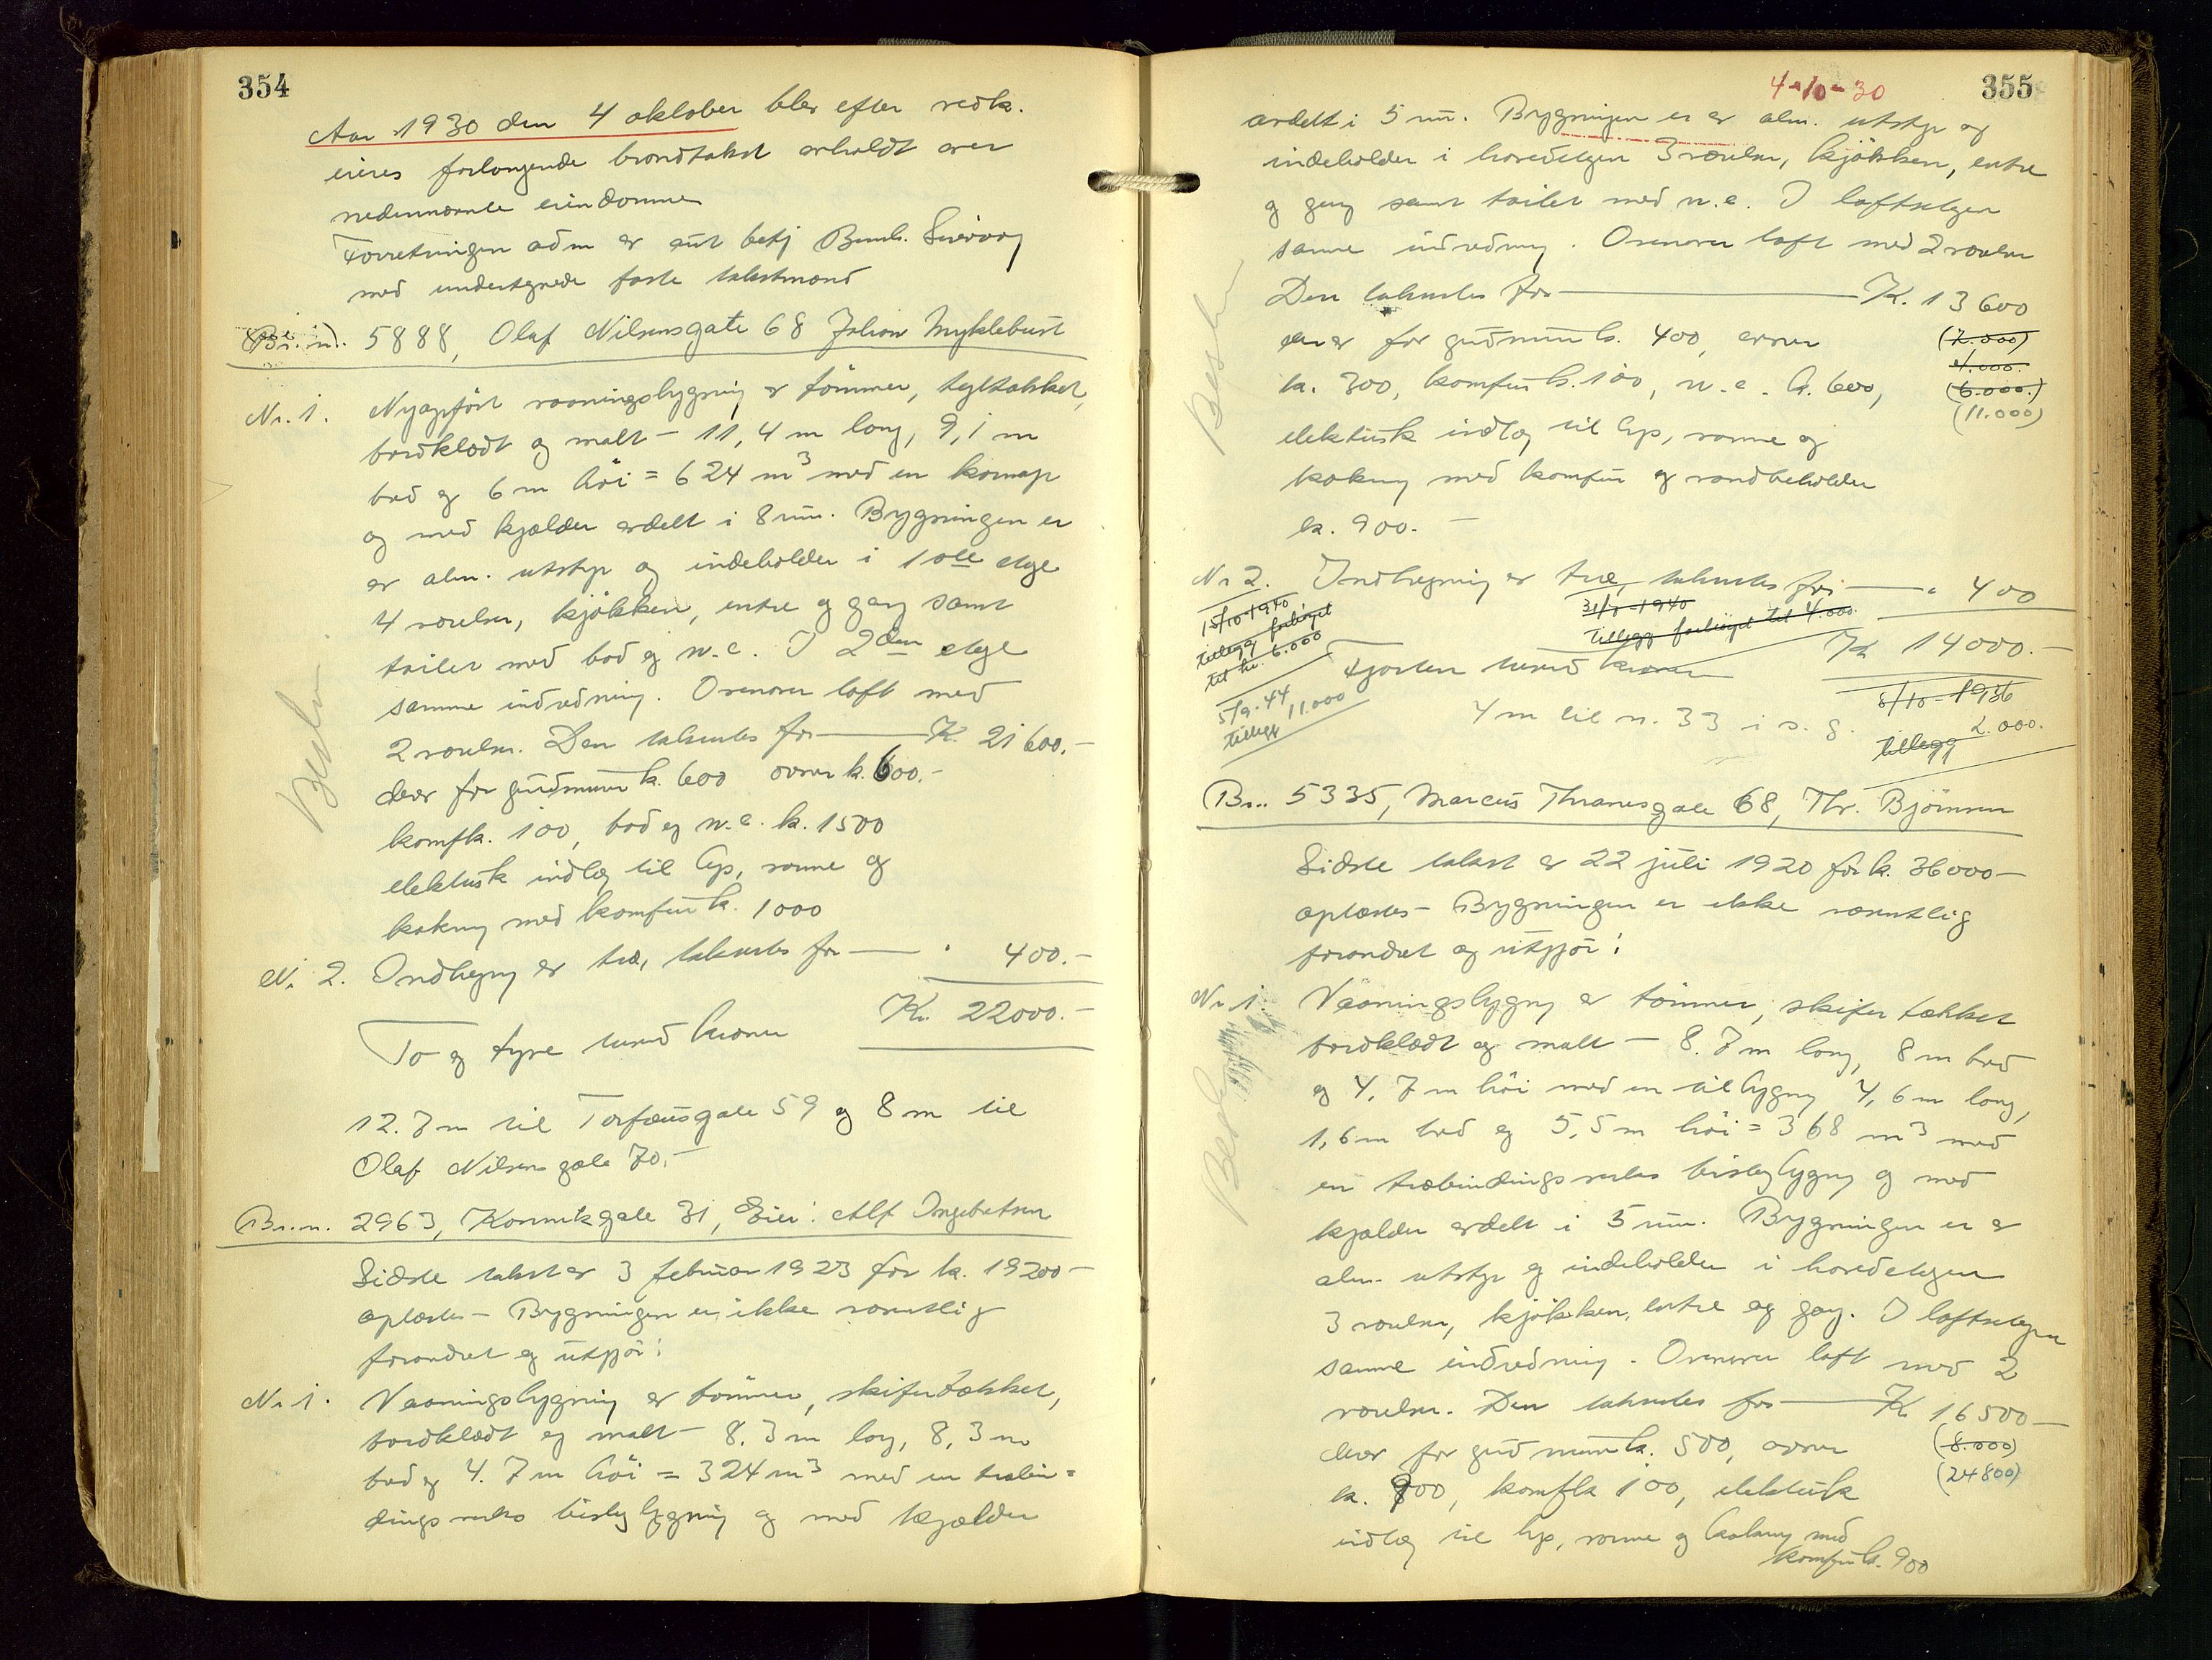 354
Aar 1930 den 4 oktober blev efter vedk.
eieres forlangende brandtakst avholdt over
nedennævnte eiendomme
Forretningen adm av aut betj Bernh.
med undertegnede faste takstmænd
Br.n. 5888, Olaf Nilsensgate 68 Johan Myklebust
Nr. 1. Nyopført vaaningsbygning av tømmer, tegltækket,
bordklædt og malt - 11,4 m lang, 9,1 m
bred og 6 m høi = 624 m³ med en kornap
og med kjælder avdelt i 8 rum. Bygningen er
av alm. utstyr og indeholder i 1ste etage
4 værelser, kjøkken, entre og gang samt
toilet med bad og w.c. I 2den etage
samme indredning. Ovenover loft med
2 værelser. Den takseres for K. 21600.-
derav for grundmur k. 600 ovner k. 600.-
komf k. 100, bad og w.c. k. 1500
elektrisk indlæg til lys, varme og
kokning med komfur k. 1000
Nr. 2. Indhegning av træ, takseres for " 400.-
Kr. 22000.-
To og tyve tusind kroner
12.7 m til Torfæusgate 59 og 8 m til
Olaf Nilsens gate 70.-
Br.n. 2963, Kannikgate 31, Eier: Alf Ingebretsen
Sidste takst av 3 februar 1923 for k. 19200-
oplæstes - Bygningen er ikke væsentlig
forandret og utgjør:
Nr 1. Vaaningsbygning av tømmer, skifertækket,
bordklædt og malt - 8,3 m lang, 8,3 m
bred og 4.7 m høi = 324 m³ med en træbin=
dingsverks bislagbygning og med kjælder
4-10-30
355
avdelt i 5 rum. Bygningen er av alm. utstyr og
indeholder i hovedetagen 3 værelser, kjøkken, entre
og gang samt toilet med w.c. I loftsetagen
samme indredning. Ovenover loft med 2 værelser
Den takseres for K. 13600
derav for grundmur k. 400, ovner
(2.000)
4.000.
k. 300, komfur k. 100, w.c. k. 600,
(6.000.)
(11.000)
elektrisk indlæg til lys, varme og
kokning med komfur og vandbeholder
k. 900.-
Nr 2. Indhegning av træ, takseres for " 400
15/10-1940
tillegg forhøyet
til kr. 6.000
31/7-1940
tillegg forhøyet til 4.000.
K 14000.-
Fjorten tusind kroner
5/9.44
tillegg 11.000
8/10-1936
tillegg 2.000.
4 m til n. 33 i s. g.
Br.. 5335, Marcus Thranesgate 68, Thr. Bjørnsen
Sidste takst av 22 juli 1920 for k. 36000-
oplæstes - Bygningen er ikke væsentlig
forandret og utgjør:
Nr 1. Vaaningsbygning av tømmer, skifertækket
bordklædt og malt - 8.7 m lang, 8 m bred
og 4,7 m høi med en tilbygning 4,6 m lang,
1,6 m bred og 5,5 m høi = 368 m³ med
en træbindingsverks bislagbygning og med
kjælder avdelt i 5 rum. Bygningen er av
alm. utstyr og indeholder i hovedetagen
3 værelser, kjøkken, entre og gang. I loftsetagen
samme indredning. Ovenover loft med 2
værelser. Den takseres for K 16500-
derav for grundmur k. 500, ovner
(8.000)
(24800)
k. 900, komf k 100, elektrisk
indlæg til lys, varme og kokning med
komfur k. 900